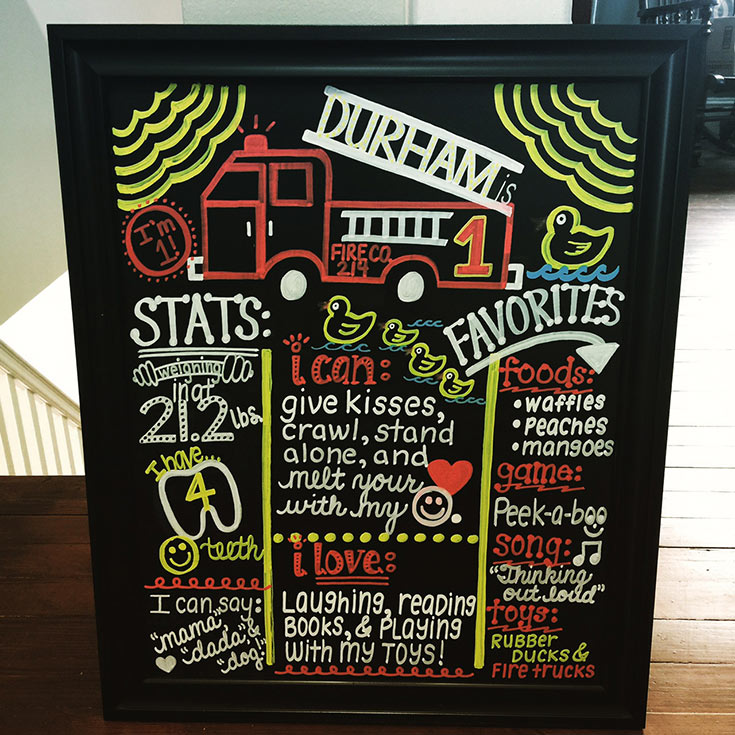 DURHAM is
I'm
1!
FIRE CO.
214
1
STATS:
weighing
in at
21.2 lbs.
I have...
4
teeth
I can say:
"mama",
"dada", &
"dog!"
i can:
give kisses,
crawl, stand
alone, and
melt your
with my .
i love:
Laughing, reading
BOOKS, & PLAYING
WITH MY TOYS!
FAVORITES
foods:
• waffles
• Peaches
• mangoes
game:
Peek-a-boo
song:
"Thinking
out loud"
toys:
RUBBER
DUCKS &
FIRE TRUCKS